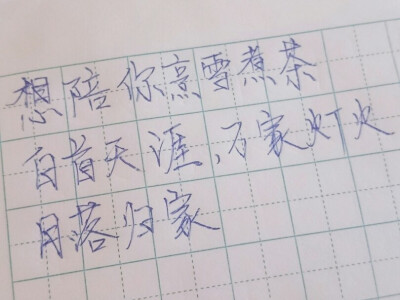 想陪你烹雪煮茶
白首天涯,万家灯火
月落归家